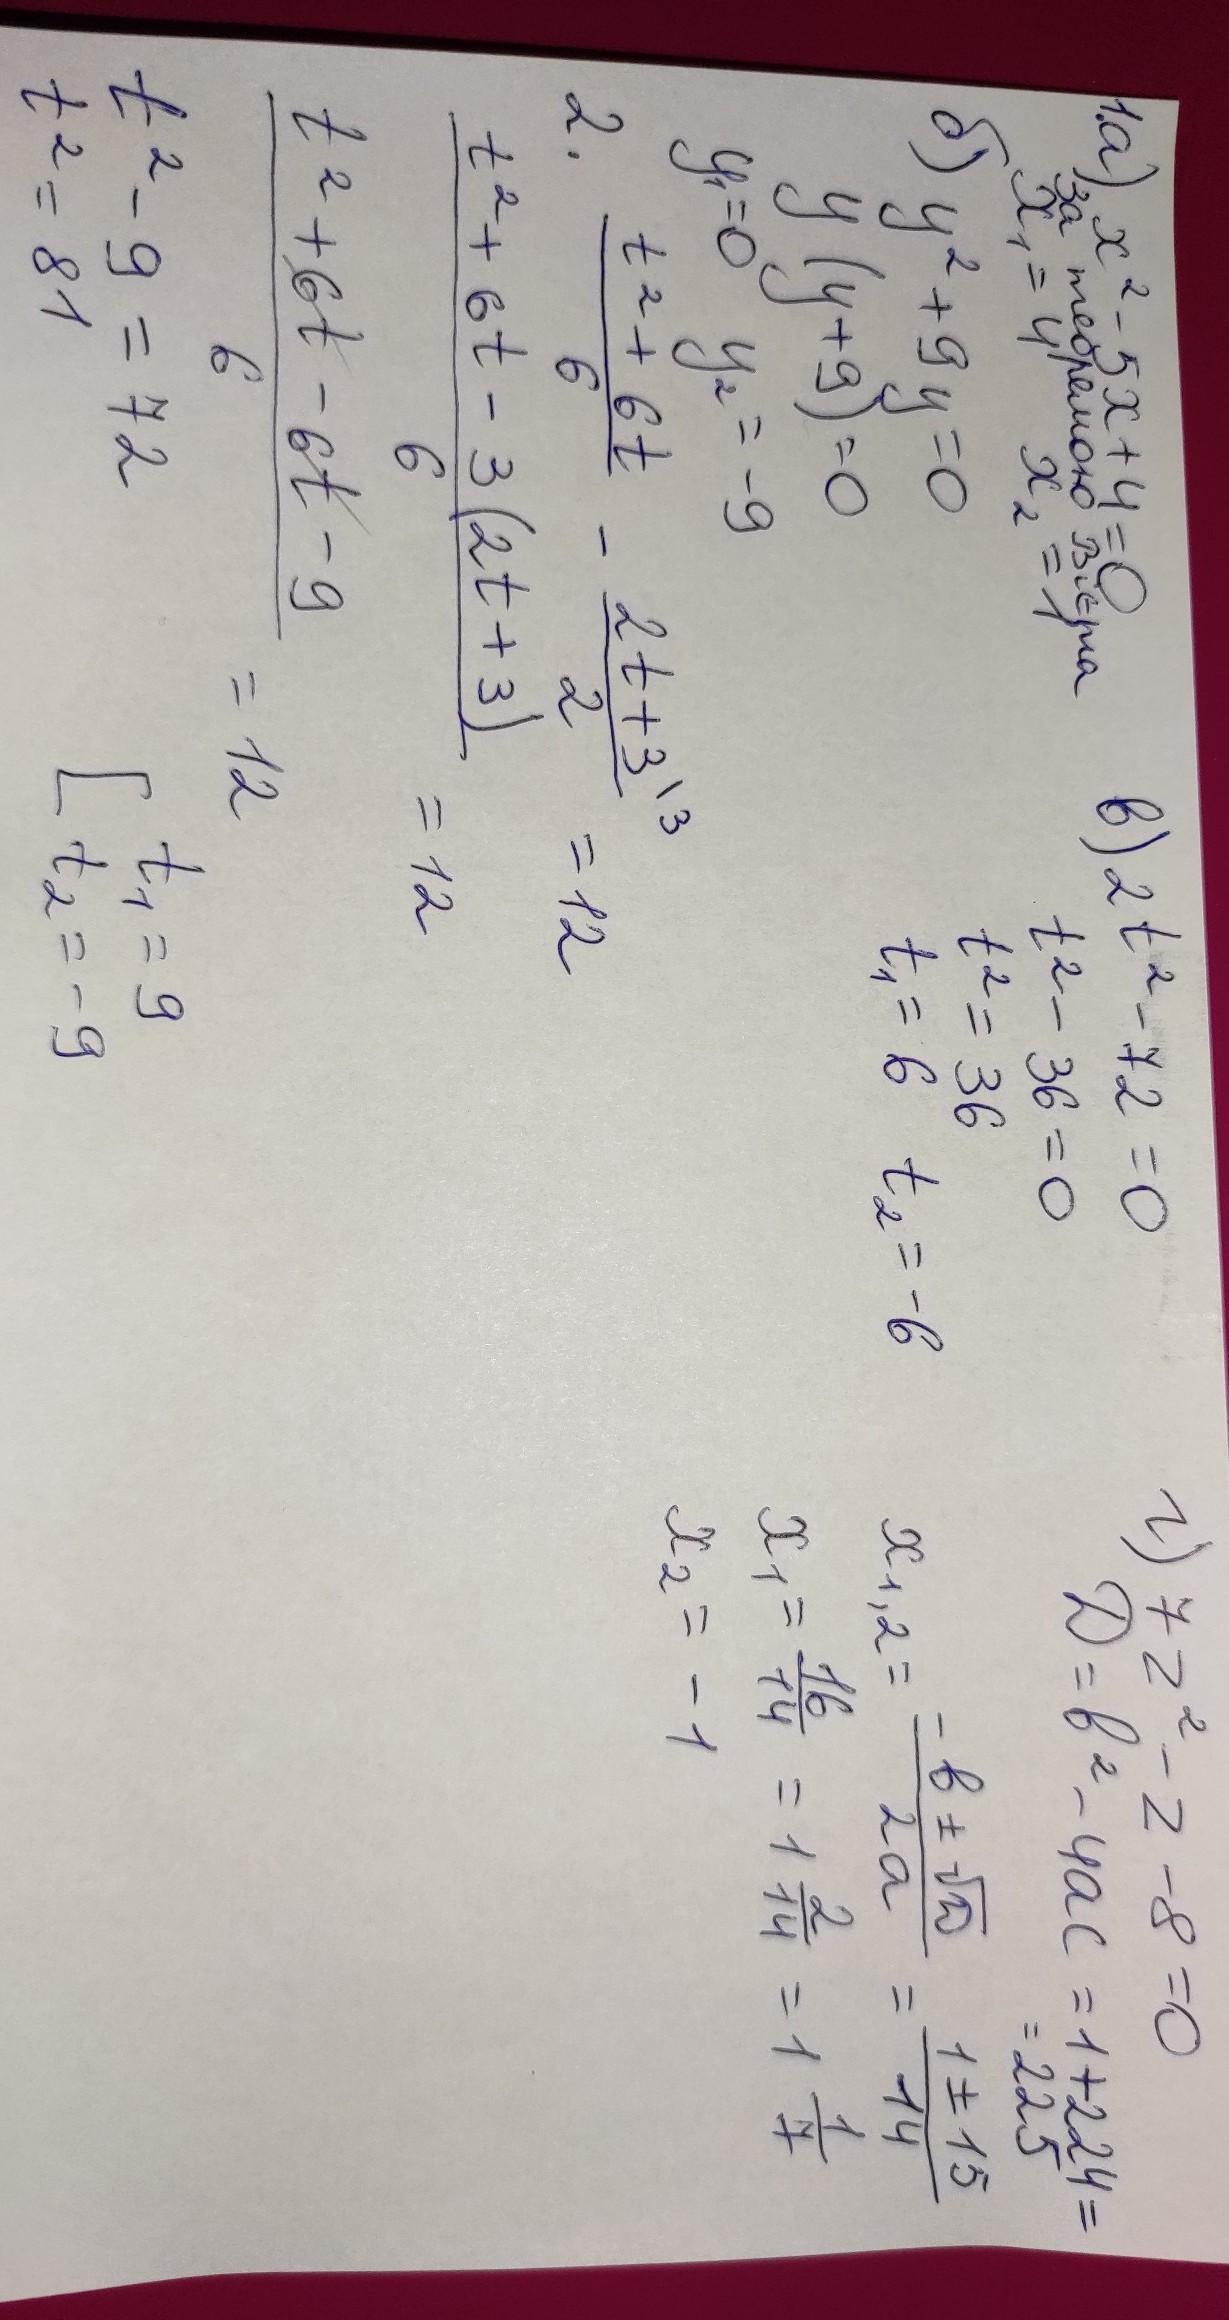 1.а) x² - 5x + 4 = 0
за теоремою Вієта
x₁ = 4 x₂ = 1
б) y² + 9y = 0
y(y + 9) = 0
y₁ = 0 y₂ = -9
в) 2t² - 72 = 0
t² - 36 = 0
t² = 36
t₁ = 6 t₂ = -6
г) 7z² - z - 8 = 0
D = b² - 4ac = 1 + 224 =
= 225
x₁,₂ = (-b ± √D)/(2a) = (1 ± 15)/14
x₁ = 16/14 = 1 2/14 = 1 1/7
x₂ = -1
2. (t² + 6t)/6 - (2t + 3)/2 \3 = 12
(t² + 6t - 3(2t + 3))/6 = 12
(t² + 6t - 6t - 9)/6 = 12
t² - 9 = 72
t² = 81
[ t₁ = 9
t₂ = -9